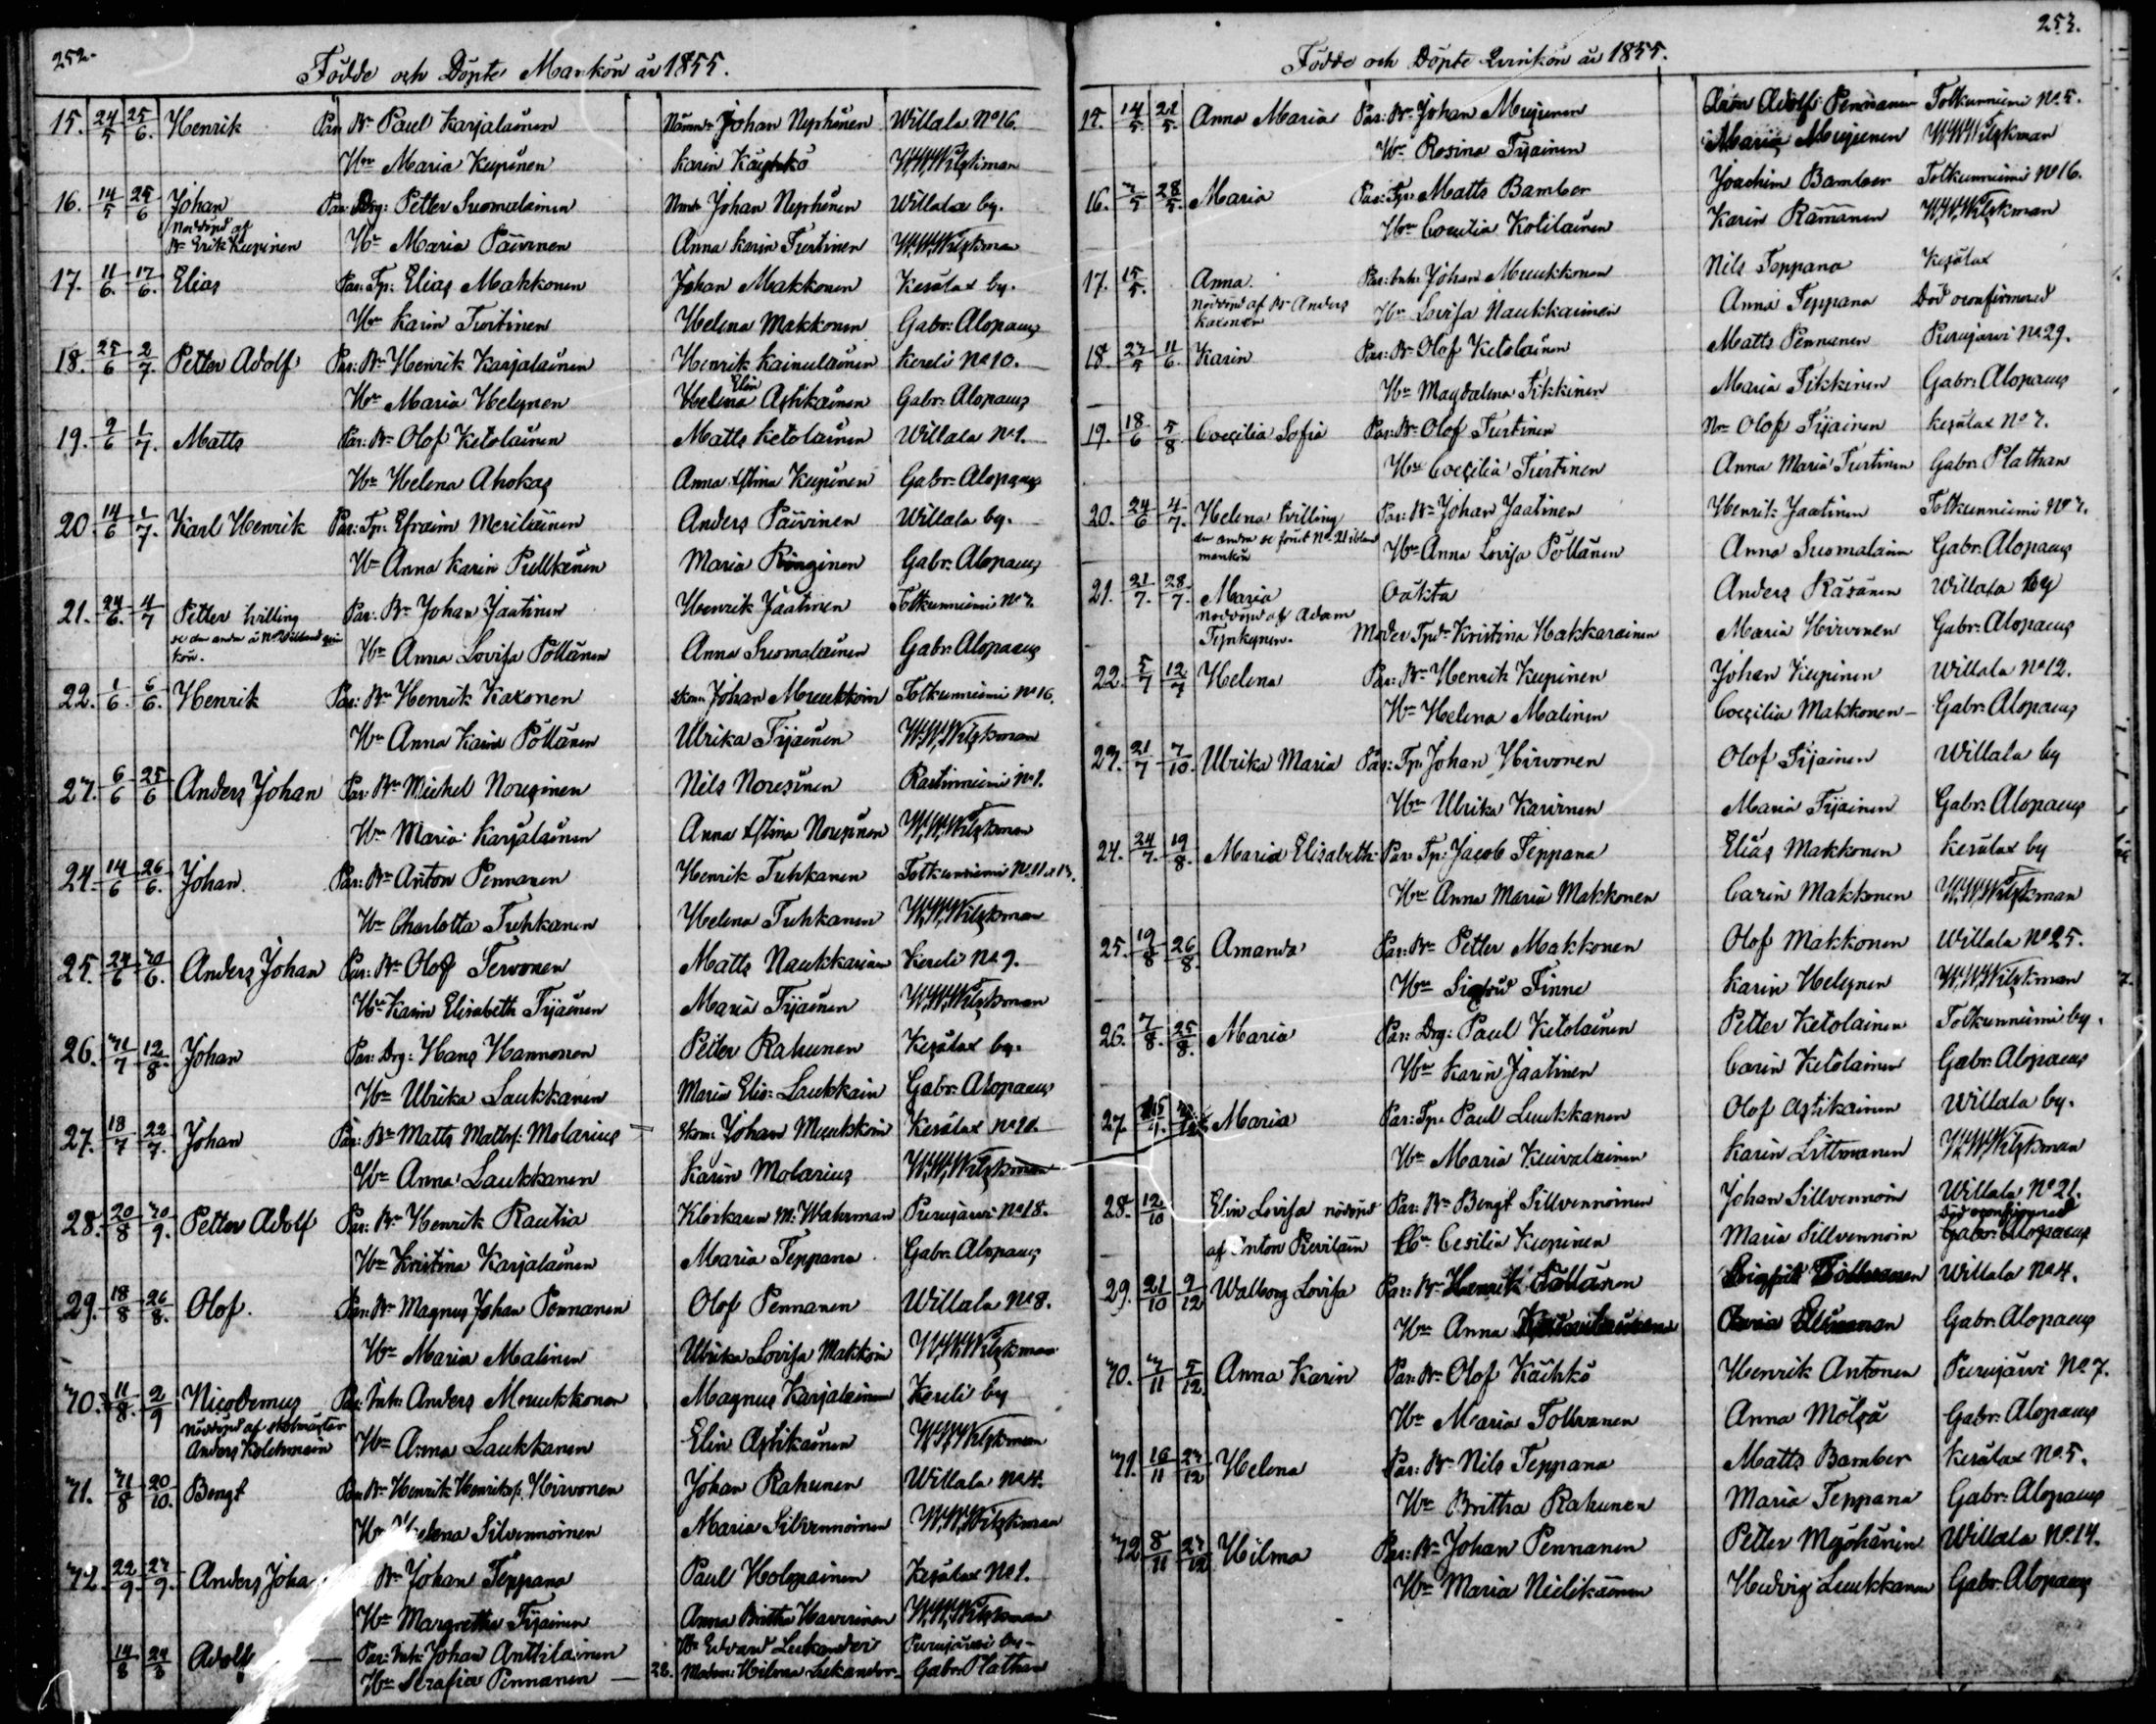 252.
Födde och Döpte Mankön år 1855.
15. 24/5 25/6. Henrik Par: Bn Paul Karjalainen Johan Nephönen Willala No 16.
Hn Maria Kupinen Karin W.W.Wilskman
16. 14/5 25/6 Johan Par: Drg: Petter Suomalainen Johan Nephönen Willala by.
Nöddöpt af
Bn Erik Kupinen Hn Maria Päivinen Anna Karin Turtinen W.W.Wilskman
17. 11/6. 17/6. Elias Par: Tp: Elias Makkonen Johan Makkonen Kesälax by.
Hn Karin Turtinen Helena Makkonen Gabr: Alopæus
18. 25/6 2/7. Petter Adolf Par: Bn Henrik Karjalainen Henrik Kainulainen Kereli No 10.
Elin
Hn Maria Helynen Helena Astikainen Gabr: Alopæus
19. 9/6 1/7. Matts Par: Bn Olof Ketolainen Matts Ketolainen Willala No 1.
Hn Helena Ahokas Anna Kupinen Gabr: Alopæus
20. 14/6 1/7. Karl Henrik Par: Tp: Efraim Meriläinen Anders Päivinen Willala by.
Hn Anna Karin Pulkkinen Maria Gabr: Alopæus
21. 24/6. 4/7 Petter tvilling Par: Bn Johan Jaatinen Henrik Jaatinen Totkunniemi No 7.
se den andra
kön. Hn Anna Lovisa Pöllänen Anna Suomalainen Gabr: Alopæus
22. 1/6. 6/6. Henrik Par: Bn Henrik Kaxonen Johan Muukkoin Totkunniemi No 16.
Hn Anna Karin Pöllänen Ulrika Tijainen W.W.Wilskman
23. 6/6 25/6 Anders Johan Par: Bn Michel Noresinen Nils Noresinen Rastinniemi No 1.
Hn Maria Karjalainen Anna Noresinen W.W.Wilskman
24. 14/6 26/6. Johan Par: Bn Anton Pennanen Henrik Tuhkanen Totkunniemi No 11
Hn Charlotta Tuhkanen Helena Tuhkanen W.W.Wilskman
25. 24/6 30/6. Anders Johan Par: Bn Olof Tervonen Matts Naukkarinen Kereli No 9.
Hn Karin Elisabeth Tijainen Maria Tijainen W.W.Wilskman
26. 31/7 12/8. Johan Par: Drg: Hans Hannonen Petter Rahunen Kesälax by.
Hn Ulrika Laukkanen Maria Elis: Laukkain Gabr: Alopæus
27. 18/7 22/7. Johan Par: Bn Matts Mattsf: Molarius Johan Muukkoin Kesälax No 10.
Hn Anna Laukkanen Karin Molarius W.W.Wilskman
28. 20/8 30/9. Petter Adolf Par: Bn Henrik Rautia Klockaren M: Wahrman Purujärvi No 18.
Hn Kristina Karjalainen Maria Teppana Gabr: Alopæus
29. 18/8 26/8. Olof. Par: Bn Magnus Johan Pennanen Olof Pennanen Willala No 8.
Hn Maria Malinen Ulrika Lovisa Makkoin W.W.Wilskman
30. 11/8. 2/9 Nicodemus Par: Inh: Anders Muukkonen Magnus Karjalainen Kereli by
nöddöpt af skolmästar
Anders Kolehmain Hn Anna Laukkanen Elin Astikainen W.W.Wilskman
31. 31/8 20/10. Bengt Par: Bn Henrik Henriksf. Hirvonen Johan Rahunen Willala No 4.
Hn Helena Silvennoinen Maria Silvennoinen W.W.Wilskman
32. 22/9 23/9. Anders Joha Bn Johan Teppana Paul Holopainen Kesälax No 1.
Hn Margretha Tijainen Anna Britha Havurinen W.W.Wilskman
14/8 24/8 Adolf Par: Inh: Johan Anttilainen Edvard Leekander Purujärvi by
Hn Serafia Pennanen 28. Hilma Leekander Gabr: Plathan
253.
Födde och Döpte Qvinkön år 1855.
15. 14/5. 21/5. Anna Maria Par: Bn Johan Mujunen Adolf Pennanen Totkunniemi No 5.
Hn Rosina Tijainen Maria Mujunen W.W.Wilskman
16. 7/5 28/5. Maria Par: Tp: Matts Bamber Joachim Bamber Totkunniemi No 16.
Hn Coecilia Kotilainen Karin Rämänen W.W.Wilskman
17. 15/5. Anna. Par: Inh: Johan Muukkonen Nils Teppana Kesälax
nöddöpt af Bn Anders
Kaxonen Hn Lovisa Naukkarinen Anna Teppana Död oconfirmerad
18. 23/5 11/6. Karin Par: Bn Olof Ketolainen Matts Pennanen Purujärvi No 29.
Hn Magdalena Tikkinen Maria Tikkinen Gabr: Alopæus
19. 18/6 5/8. Coecilia Sofia Par: Bn Olof Turtinen Olof Tijainen Kesälax No 7.
Hn Coecilia Turtinen Anna Maria Turtinen Gabr: Plathan
20. 24/6 4/7. Helena tvilling Par: Bn Johan Jaatinen Henrik Jaatinen Totkunniemi No 7.
den andra se förut No 21 ibland
mankön Hn Anna Lovisa Pöllänen Anna Suomalain Gabr: Alopæus
21. 21/7. 28/7. Maria Oäkta Anders Räsänen Willala by
nöddöpt af Adam
Tynkynen. Moder Kristina Hakkarainen Maria Hirvonen Gabr: Alopæus
22. 5/7 12/7 Helena Par: Bn Henrik Kupinen Johan Kupinen Willala No 12.
Hn Helena Malinen Coecilia Makkonen Gabr: Alopæus
23. 21/7 7/10. Ulrika Maria Par: Tp: Johan Hirvonen Olof Tijainen Willala by
Hn Ulrika Karvinen Maria Tijainen Gabr: Alopæus
24. 24/7. 19/8. Maria Elisabeth Par: Tp: Jacob Teppana Elias Makkonen Kesälax by
Hn Anna Maria Makkonen Carin Makkonen W.W.Wilskman
25. 19/8 26/8. Amanda Par: Bn Petter Makkonen Olof Makkonen Willala No 25.
Hn Sigrid Finne Karin Helynen W.W.Wilskman
26. 7/8. 25/8. Maria Par: Drg: Paul Ketolainen Petter Ketolainen Totkunniemi by.
Hn Karin Jaatinen Carin Ketolainen Gabr: Alopæus
27. Maria Par: Tp: Paul Luukkanen Olof Astikainen Willala by.
Hn Maria Kuivalainen Karin Litmanen W.W.Wilskman
28. 12/10 Elin Lovisa nöddöpt Par: Bn Bengt Sillvennoinen Johan Sillvennoin Willala No 21.
Död oconfirmerad
af Anton Hn Cesilia Kupinen Maria Sillvennoin Gabr: Alopæus
29. 21/10 9/12 Walborg Lovisa Par: Bn Henrik Willala No 4.
Hn Anna Gabr: Alopæus
30. 7/11 5/12. Anna Karin Par: Bn Olof Käihkö Henrik Antonen Purujärvi No 7.
Hn Maria Tollvanen Anna Mölsä Gabr: Alopæus
31. 16/11 23/12 Helena Par: Bn Nils Teppana Matts Bamber Kesälax No 5.
Hn Britha Rahunen Maria Teppana Gabr: Alopæus
32. 8/11 23/12 Hilma Par: Bn Johan Pennanen Petter Myöhänin Willala No 14.
Hn Maria Nielikäinen Hedvig Luukkanen Gabr: Alopæus